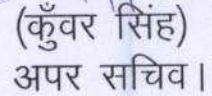 (कुँवर सिंह)
अपर सचिव।